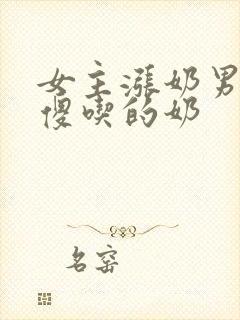 女主涨奶男
傻喫的奶
名窑